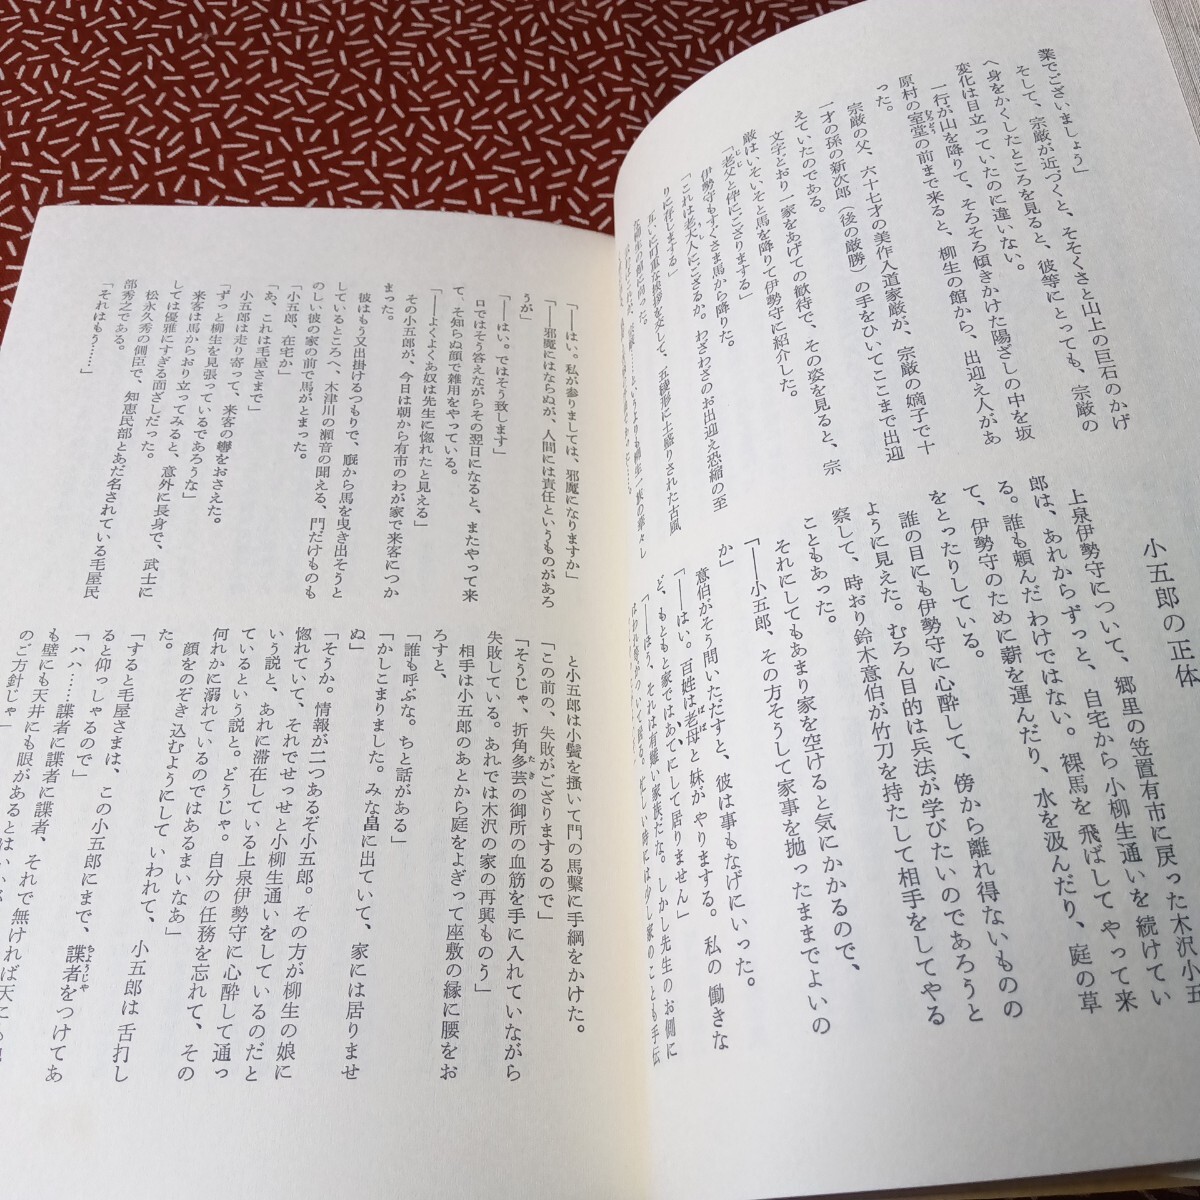 業でございましょう」
そして、宗厳が近づくと、そそくさと山上の巨石のかげ
へ身をかくしたところを見ると、彼等にとっても、宗厳の
変化は目立っていたのに違いない。
一行が山を降りて、そろそろ傾きかけた陽ざしの中を坂
原村の室堂の前まで来ると、柳生の館から、出迎え人があ
った。
宗厳の父、六十七才の美作入道家厳が、宗厳の嫡子で十
一才の孫の新次郎（後の厳勝）の手をひいてここまで出迎
えていたのである。
文字とおり一家をあげての歓待で、その姿を見ると、宗
厳はいそいそと馬を降りて伊勢守に紹介した。
「老父と伜にござりまする」
伊勢守もすぐさま馬から降りた。
「これは老大人にござるか。わざわざのお出迎え恐縮の至
りに存じまする」
互いに鄭重な挨拶を交して、五稜形に土盛りされた古風
小五郎の正体
上泉伊勢守について、郷里の笠置有市に戻った木沢小五
郎は、あれからずっと、自宅から小柳生通いを続けてい
る。誰も頼んだわけではない。裸馬を飛ばしてやって来
て、伊勢守のために薪を運んだり、水を汲んだり、庭の草
をとったりしている。
誰の目にも伊勢守に心酔して、傍から離れ得ないものの
ように見えた。むろん目的は兵法が学びたいのであろうと
察して、時おり鈴木意伯が竹刀を持たして相手をしてやる
こともあった。
それにしてもあまり家を空けると気にかかるので、
「――小五郎、その方そうして家事を抛ったままでよいの
か」
意伯がそう問いただすと、彼は事もなげにいった。
「――はい。百姓は老母と妹がやりまする。私の働きな
ど、もともと家ではあてにして居りません」
「――ほう、それは有難い家族だな。しかし先生のお側に
「――はい。私が参りましては、邪魔になりますか」
「――邪魔にはならぬが、人間には責任というものがあろ
うが」
「――はい。ではそう致します」
口ではそう答えながらその翌日になると、またやって来
て、そ知らぬ顔で雑用をやっている。
「――よくよくあ奴は先生に惚れたと見える」
その小五郎が、今日は朝から有市のわが家で来客につか
まった。
彼はもう又出掛けるつもりで、厩から馬を曳き出そうと
しているところへ、木津川の瀬音の聞える、門だけものも
のしい彼の家の前で馬がとまった。
「小五郎、在宅か」
「あ、これは毛屋さまで」
小五郎は走り寄って、来客の轡をおさえた。
「ずっと柳生を見張っているであろうな」
来客は馬からおり立ってみると、意外に長身で、武士に
しては優雅にすぎる面ざしだった。
松永久秀の側臣で、知恵民部とあだ名されている毛屋民
部秀之である。
「それはもう……」
と小五郎は小鬢を掻いて門の馬繋に手綱をかけた。
「この前の、失敗がござりまするので」
「そうじゃ、折角多芸の御所の血筋を手に入れていながら
失敗している。あれでは木沢の家の再興ものう」
相手は小五郎のあとから庭をよぎって座敷の縁に腰をお
ろすと、
「誰も呼ぶな。ちと話がある」
「かしこまりました。みな畠に出ていて、家には居りませ
ぬ」
「そうか。情報が二つあるぞ小五郎。その方が柳生の娘に
惚れていて、それでせっせと小柳生通いをしているのだと
いう説と、あれに滞在している上泉伊勢守に心酔して通っ
ているという説と。どうじゃ。自分の任務を忘れて、その
何れかに溺れているのではあるまいなあ」
顔をのぞき込むようにしていわれて、小五郎は舌打し
た。
「すると毛屋さまは、この小五郎にまで、諜者をつけてあ
ると仰っしゃるので」
「ハハ……諜者に諜者に諜者、それで無ければ天に
も壁にも天井にも眼があるとはいい
のご方針じゃ」